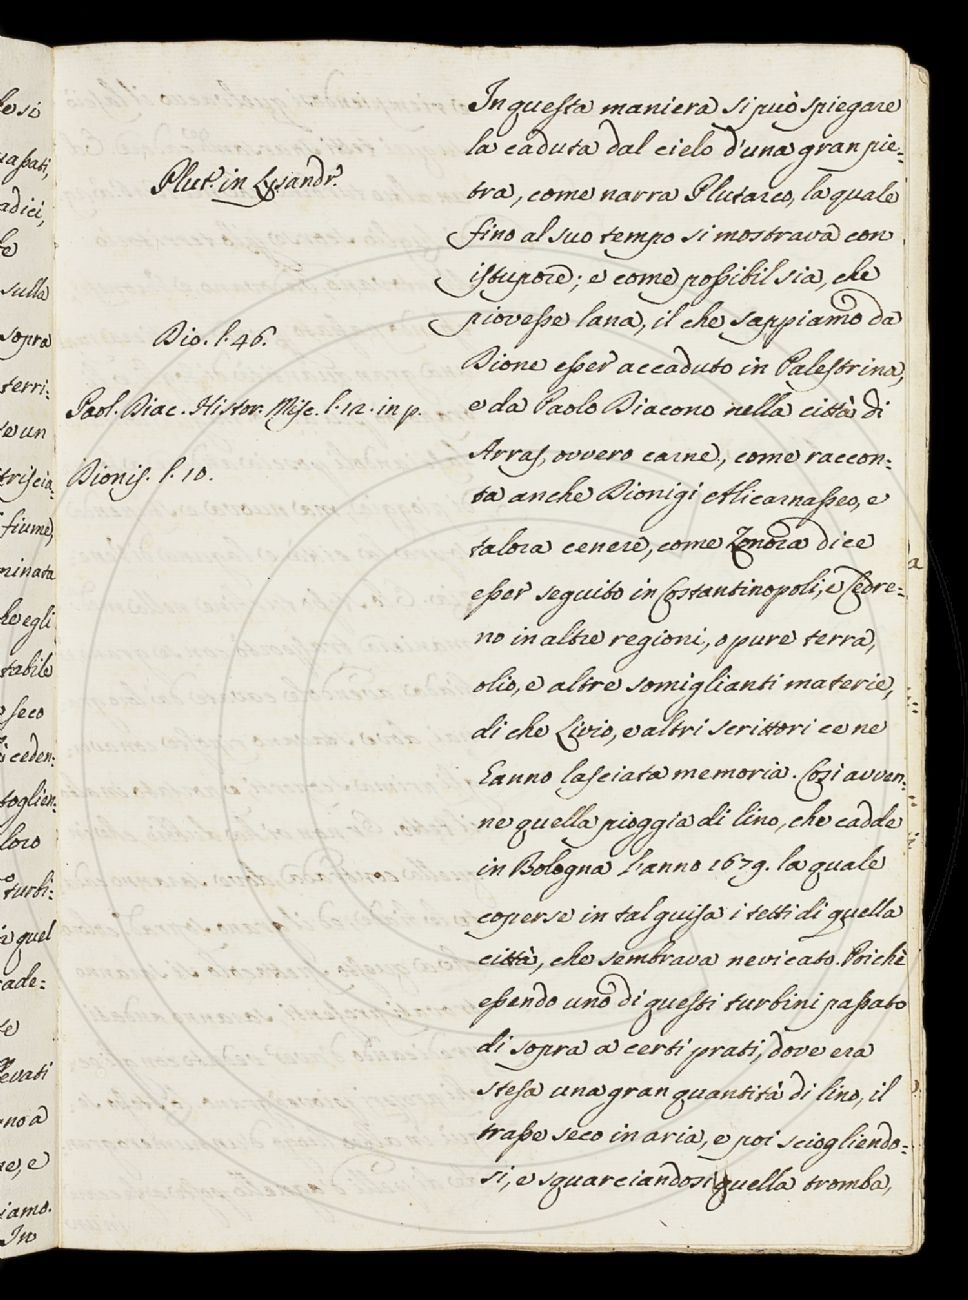 In questa maniera si può spiegare
la caduta dal cielo d'una gran pie=
Plut. in Lysandr.
tra, come narra Plutarco, la quale
fino al suo tempo si mostrava con
istupore; e come possibil sia, che
piovesse lana, il che sappiamo da
Dio. l. 46.
Dione esser accaduto in Palestrina,
Paol. Diac. Histor. Misc. l. 12. in p.
e da Paolo Diacono nella città di
Arras, ovvero carne, come raccon=
Dionis. l. 10.
ta anche Dionigi Alicarnasseo, e
talora cenere, come Zonora dice
esser seguito in Costantinopoli, e Cedre=
no in altre regioni, o pure terra,
olio, e altre somiglianti materie,
di che Livio, e altri scrittori ce ne
hanno lasciata memoria. Così avven=
ne quella pioggia di lino, che cadde
in Bologna l'anno 1679. la quale
coperse in tal guisa i tetti di quella
città, che sembrava nevicato. Poichè
essendo uno di questi turbini passato
di sopra a certi prati, dove era
stesa una gran quantità di lino, il
trasse seco in aria, e poi sciogliendo=
si, e squarciandosi quella tromba,